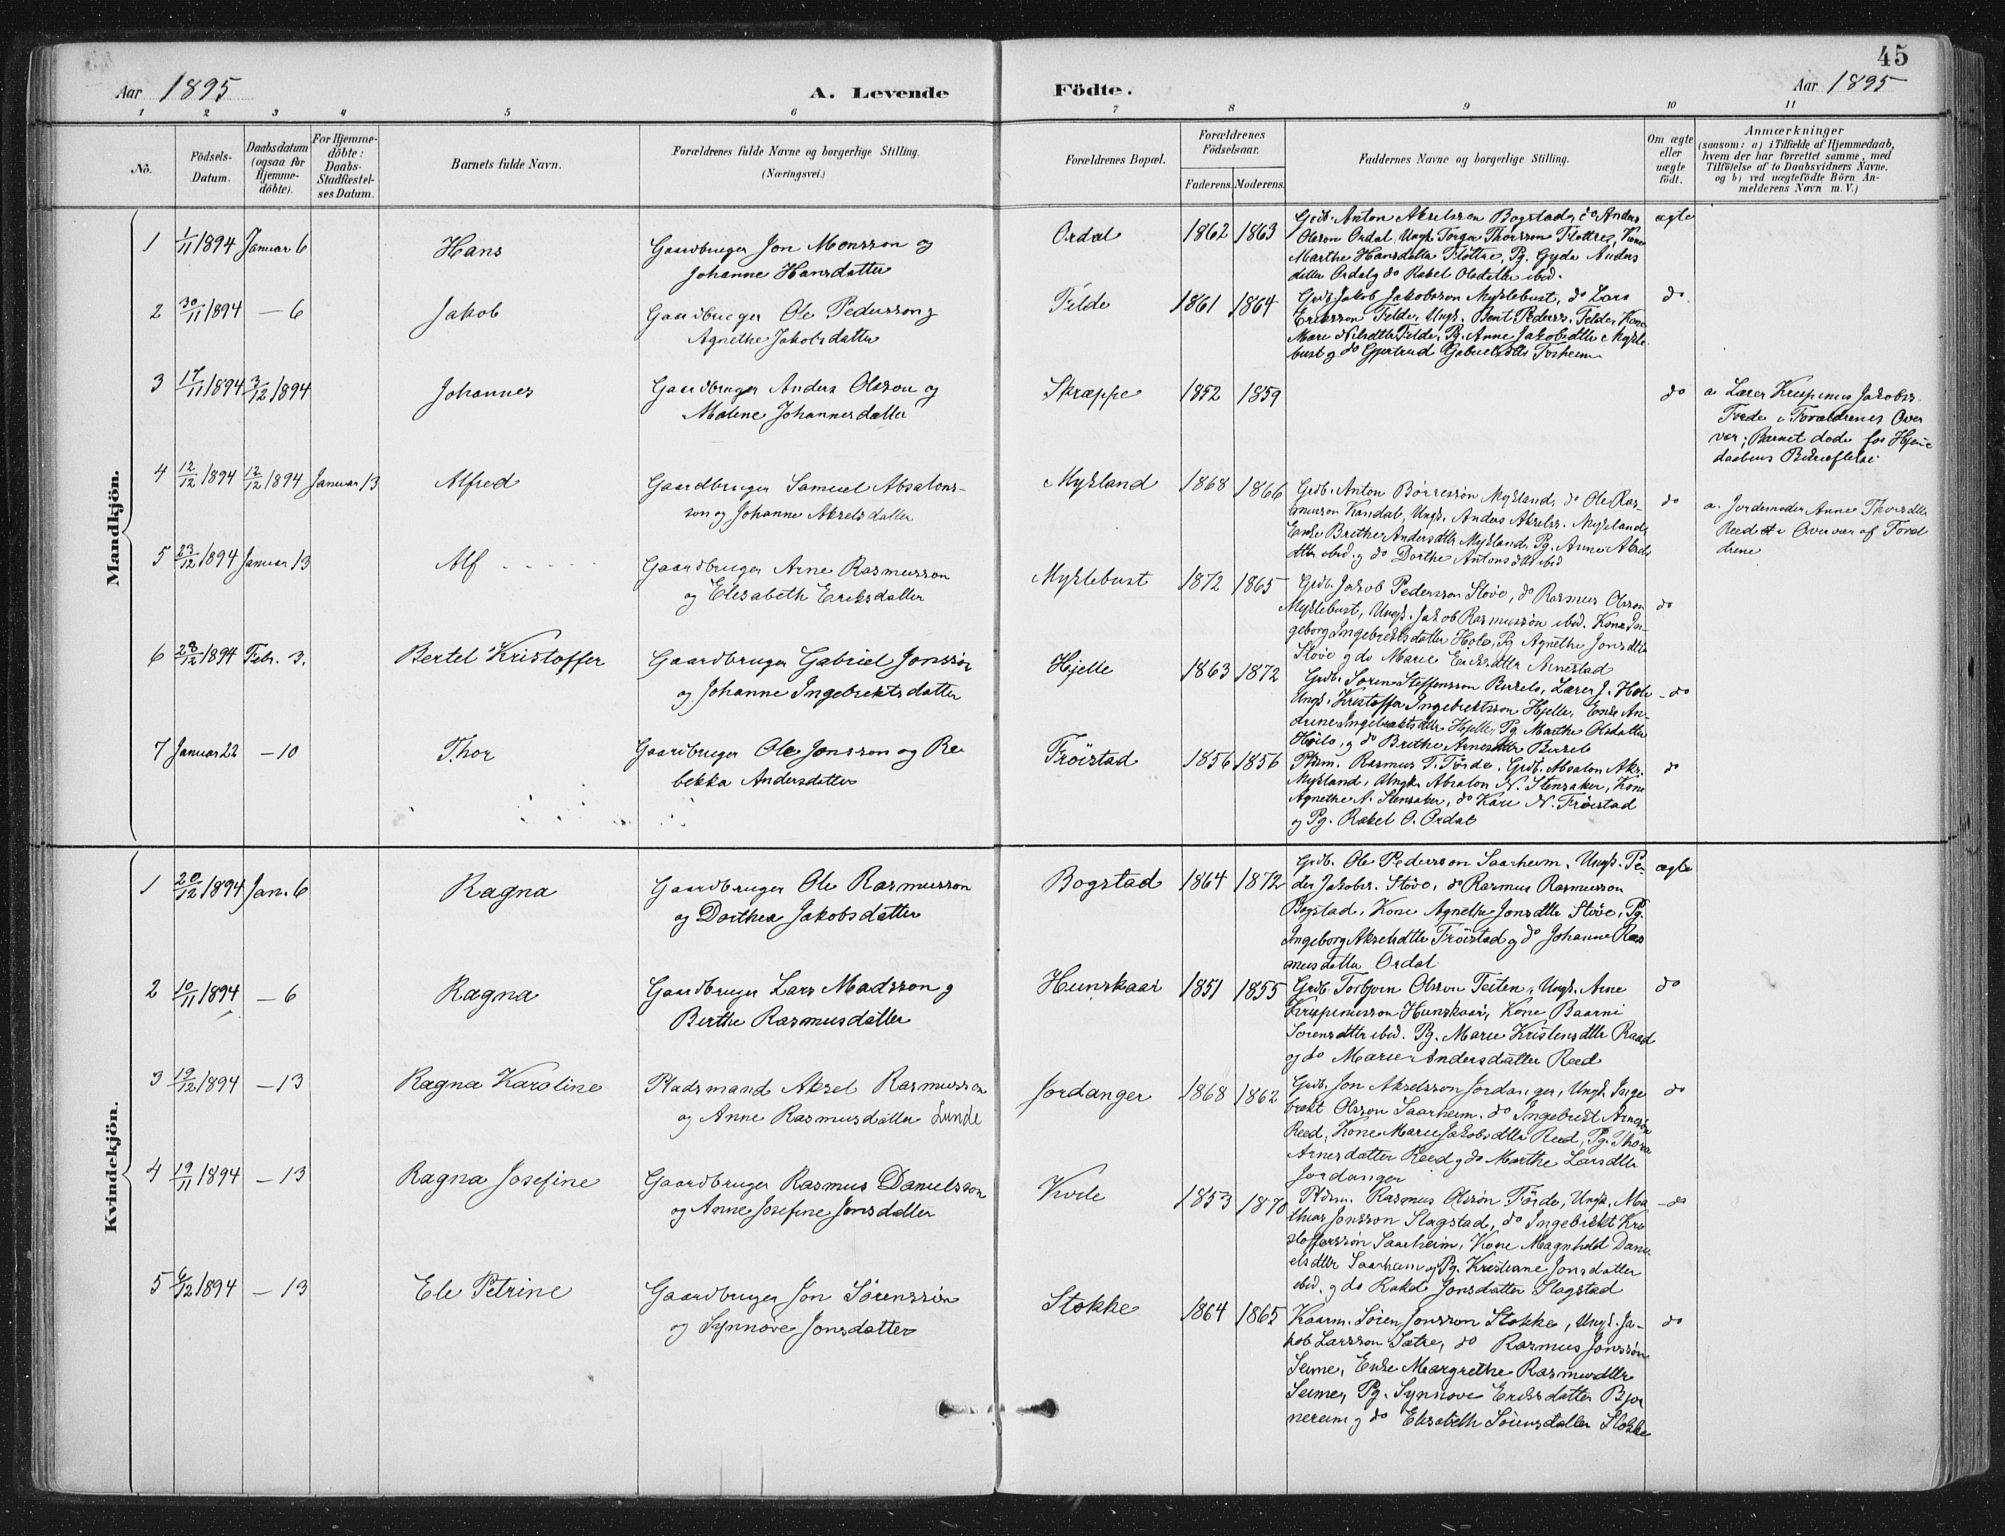 45
Aar 1895 A. Levende Födte. Aar 1895
1 2 3 4 5 6 7 8 9 10 11
No.
Födsels-Datum.
Daabsdatum (ogsaa for Hjemme-döbte).
For Hjemme-döbte: Daabs-Stadfæstel-ses Datum.
Barnets fulde Navn.
Forældrenes fulde Navne og borgerlige Stilling.
(Næringsvei.)
Forældrenes Bopæl.
Forældrenes Födselsaar.
Faderens. Moderens.
Faddernes Navne og borgerlige Stilling.
Om ægte eller uægte födt.
Anmærkninger
(saasom: a) i Tilfælde af Hjemmedaab,
hvem der har forrettet samme, med
Tilföielse af to Daabsvidners Navne,
og b) ved uægtefödte Börn An-
melderens Navn m. V.)
Mandkjön.
1 1/11 1894 Januar 6 Hans Gaardbruger Jon Monsson og
Johanne Hansdatter
Ordal 1862 1863
Grdb. Anton Akselsson Bogstad, do Anders
Olsson Ordal, Ungk. Torger Thorsson Flöttre, Kone
Marthe Hansdatter Flöttre, Pg. Gyda Anders
datter Ordal og do Rakel Olsdatter ibid.
ægte
2 30/11 1894 — 6 Jakob Gaardbruger Ole Pedersson g
Agnethe Jakobsdatter
Felde 1861 1864
Grdb. Jakob Jakobsson Myklebust, do Lars
Eriksson Felde, Ungk. Bent Peders. Felde, Kone
Mari Nilsdtter Felde, Pg. Anne Jakobsdtter Mykle
bust g do Gjertrud Gabrielsdtter Fosheim
do
3 17/11 1894 3/12 1894 Johannes Gaardbruger Anders Olsson og
Malene Johannesdatter
Skrappe 1852 1859 do
a. Lærer Krispinus Jakobss.
Förde i Forældrenes Over
vær; Barnet döde för Hjem
daabens Bekræftelse
4 12/12 1894 12/12 1894 Januar 13 Alfred Gaardbruger Samuel Absalons-
son og Johanne Akselsdatter
Mykland 1868 1866
Grdb. Anton Börresson Mykland, do Ole Ras-
musson Kandal, Ungk. Anders Akselss. Mykland,
Enke Brithe Andersdtter Mykland, Pg. Anne Aksels
dtter ibid. og do Dorthe Antonsdtt ibid
do
a. Jordemoder Anne Thorsdtter
Reed i Overvær af Foræl
drene
5 23/12 1894 Januar 13 Alf Gaardbruger Arne Rasmusson
og Elisabeth Eriksdatter
Myklebust 1872 1865
Grdb. Jakob Pedersson Stöve, do Rasmus Olsson
Myklebust, Ungk. Jakob Rasmusson ibid. Kone In-
geborg Ingebrektsdatter Hole, Pg Agnethe Jonsdtter
Stöve g do Marie Eriksdtter Arnestad
do
6 28/12 1894 Febr. 3. Bertel Kristoffer Gaardbruger Gabriel Jonssön
og Johanne Ingebrektsdatter
Hjelle 1863 1872
Grdb. Sören Steffensson Berrelo, Lærer J. Hole
Ungk. Kristoffer Ingebrektsson Hjelle, Enke An-
drine Ingebrektsdtter Hjelle, Pg Marthe Olsdatter
og do Brithe Arnesdtter
do
7 Januar 22 — 10 Thor Gaardbruger Ole Jonsson og Re
bekka Andersdatter
Fröistad 1856 1856
Pldsm. Rasmus T. Förde, Grdb. Absalon Aks.
Mykland, Ungk. Absalon N. Stensaker, Kone
Agnethe A. Stensaker, do Kari N. Fröistad
og Pg. Rakel O. Ordal
do
Kvindekjön.
1 20/12 1894 Jan. 6 Ragna Gaardbruger Ole Rasmusson
og Dorthea Jakobsdatter
Bogstad 1864 1872
Grdb. Ole Pedersson Saarheim, Ungk. Pe-
der Jakobs. Stöve, do Rasmus Rasmusson
Bogstad, Kone Agnethe Jonsdtter Stöve, Pg.
Ingeborg Akselsdtter Fröistad g do Johanne Ras
musdatter Ordal
ægte
2 10/11 1894 — 6 Ragna Gaardbruger Lars Madsson g
Berthe Rasmusdatter
Hunskaar 1851 1855
Grdb. Torbjorn Olsson Teiten, Ungk. Arne
Krispinusson Hunskaar, Kone Baarni
Sörensdtter ibid. Pg. Marie Kristensdtter Raad
og do Marie Andersdatter Reed
do
3 19/12 1894 — 13 Ragna Karoline Pladsmand Aksel Rasmusson
og Anne Rasmusdatter Lunde
Jordanger 1868 1862
Grdb. Jon Akselsson Jordanger, Ungk. Inge
brekt Olsson Saarheim. do Ingebrekt Arnesson
Reed, Kone Marie Jakobsdtter Reed, Pg. Thora
Arnesdatter Reed g do Marthe Larsdtter
Jordanger
do
4 19/11 1894 — 13 Ragna Josefine Gaardbruger Rasmus Danielsson
og Anne Josefine Jonsdatter
Kvile 1853 1870
Pldsm. Rasmus Olssön Förde, Ungk. Ma
thias Jonsson Slagstad, do Ingebrekt Kri
stofferssön Saarheim, Kone Magnhild Dani
elsdtter Saarheim og Pg. Kristiane Jonsdatter
ibid. g do Rakel Jonsdatter Slagstad
do
5 6/12 1894 — 13 Ele Petrine Gaardbruger Jon Sörenssön
og Synnöve Jonsdatter
Stokke 1864 1865
Kaarm. Sören Jonsson Stokke, Ungk. Ja-
kob Larsson Sætre, do Rasmus Jonssön
Seime, Enke Margrethe Rasmusdtter
Seime, Pg. Synnöve Eriksdatter Bjor
nereim g do Elisabeth Sörensdatter Stokke
do